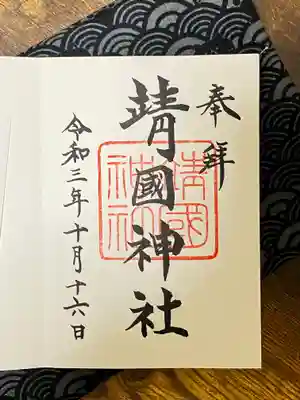 奉拝
靖國神社
靖國
神社
令和三年十月十六日